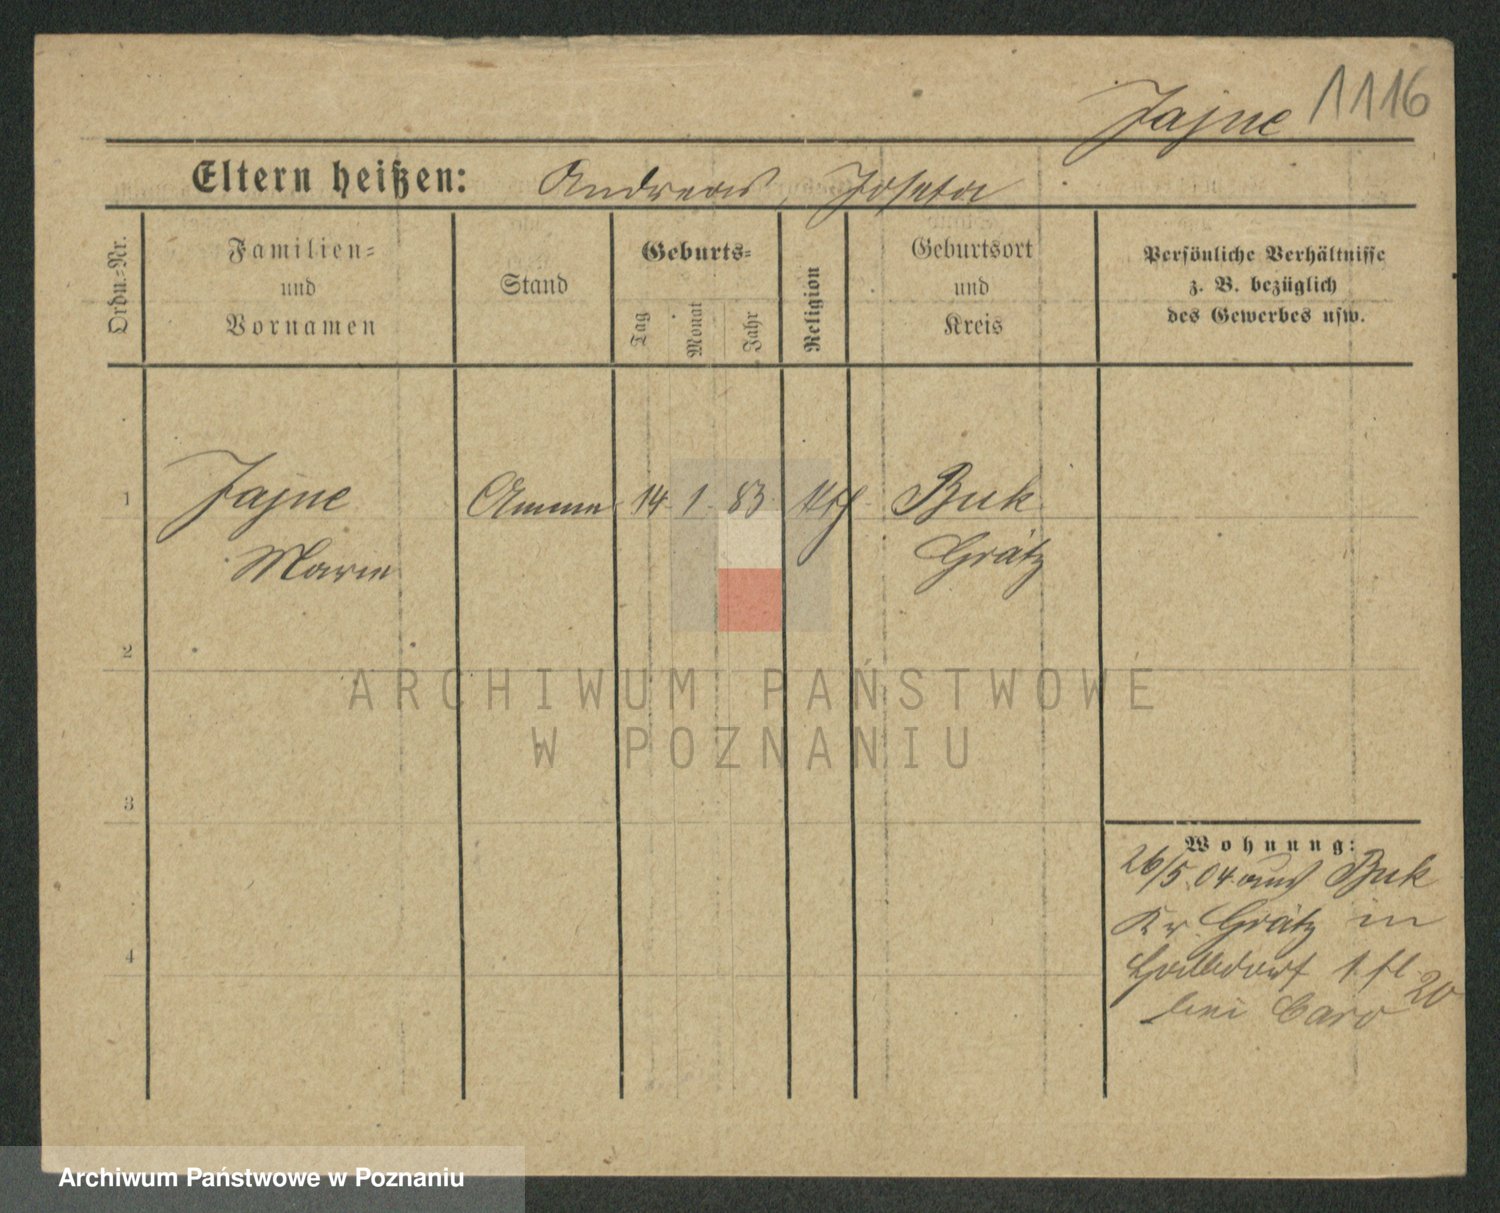 Jajne 1116
Eltern heißen: Andreas, Josefa
Ordn.-Nr.
Familien-
und
Vornamen
Stand
Geburts-
Tag
Monat
Jahr
Religion
Geburtsort
und
Kreis
Persönliche Verhältnisse
z. B. bezüglich
des Gewerbes usw.
1 Jajne Amme 14. 1. 83. kth Buk
Marie Grätz
2
ARCHIWUM PAŃSTWOWE
W POZNANIU
3
Wohnung:
26/5.04 aus Buk
Kr. Grätz in
4
bei Caro 20
Archiwum Państwowe w Poznaniu